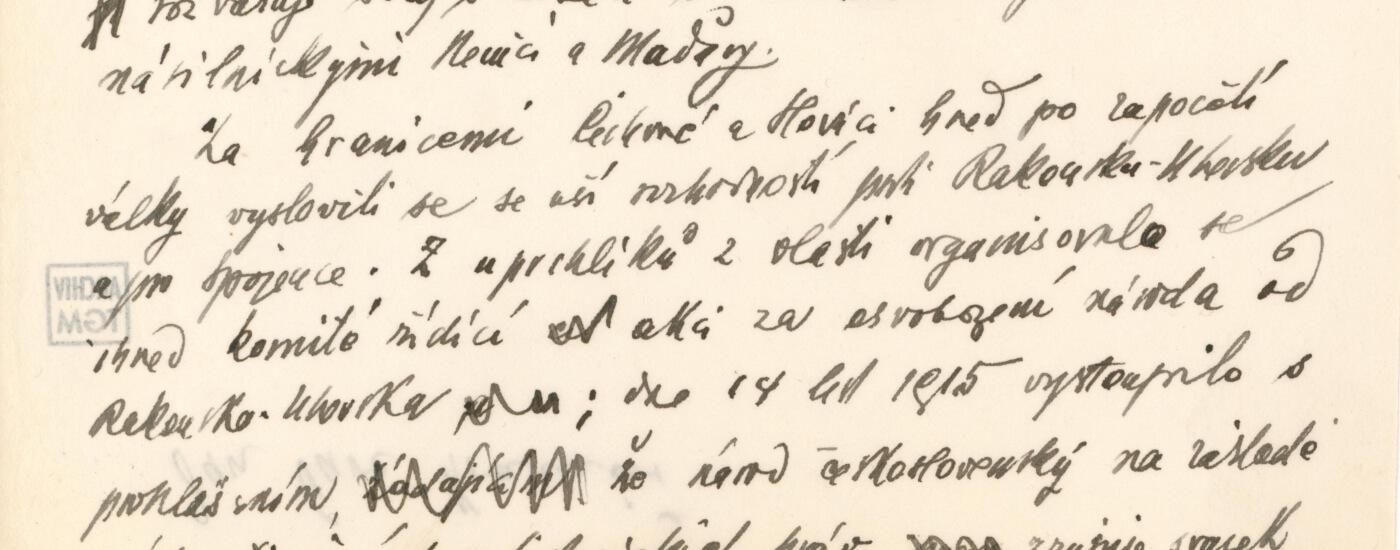 násilnickými Němci a Maďary.
Za hranicemi Čechové a Slováci hned po započetí
války vyslovili se se vší rozhodností proti Rakousku-Uhersku
a pro Spojence. Z uprchlíků z vlasti organisovalo se
ihned komité řídící akci za osvobození národa od
Rakouska-Uherska ; dne 14 list 1915 vystoupilo s
prohlášením, že národ československý na základě
práv zrušuje svazek
ARCHIV
TGM